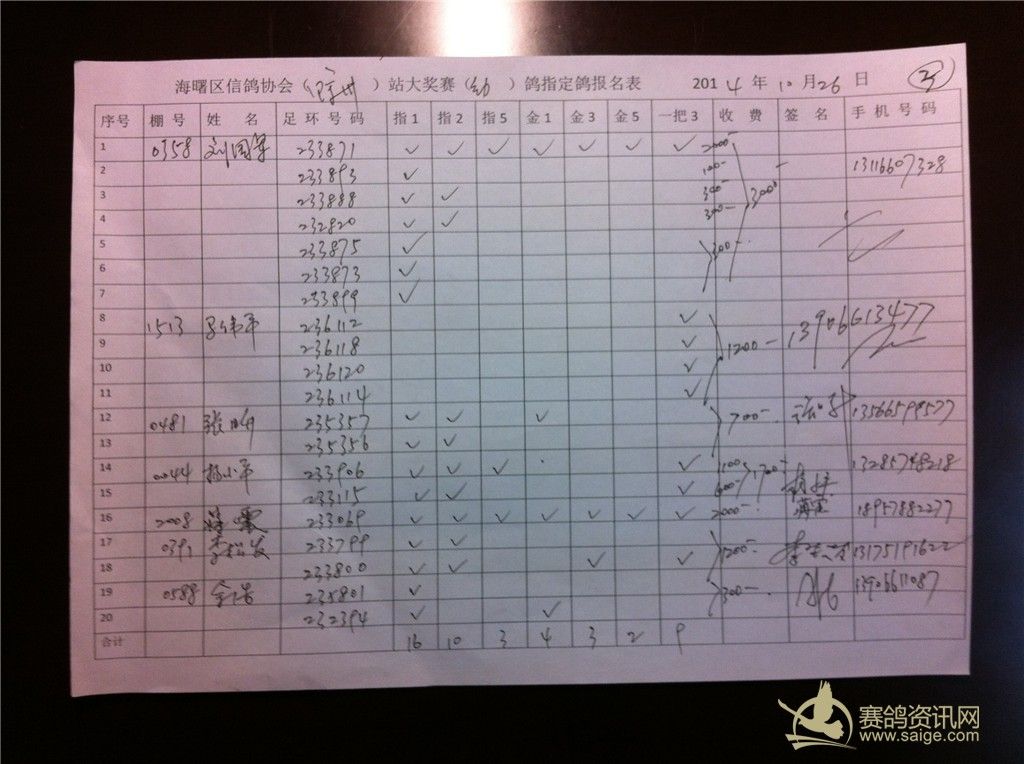 海曙区信鸽协会（ ）站大奖赛（幼）鸽指定鸽报名表 2014年10月26日
序号 棚号 姓名 足环号码 指1 指2 指5 金1 金3 金5 一把3 收费 签名 手机号码
1 0358 刘国 233871 ✓ ✓ ✓ ✓ ✓ ✓ ✓ 2000-
2 233893 ✓ 100- 13116607328
3 233888 ✓ ✓ 300- 3000-
4 232820 ✓ ✓ 300-
5 233875 ✓ 300-
6 233873 ✓
7 233899 ✓
8 1513 236112 ✓ 13906613477
9 236118 ✓ 1200-
10 236120 ✓
11 236114 ✓
12 0481 张 235357 ✓ ✓ ✓ 700- 13566599577
13 235356 ✓ ✓
14 0044 杨小平 233906 ✓ ✓ ✓ ✓ 1100- 1700- 13285748218
15 233115 ✓ ✓ ✓ 600-
16 2008 233069 ✓ ✓ ✓ ✓ ✓ ✓ ✓ 2000- 18957882277
17 0391 李松发 233799 ✓ ✓ 1200- 13175191622
18 233800 ✓ ✓ ✓ ✓
19 0588 金 235801 ✓ 300- 13906611087
20 232394 ✓ ✓
合计 16 10 3 4 3 2 9
赛鸽资讯网
www.saige.com